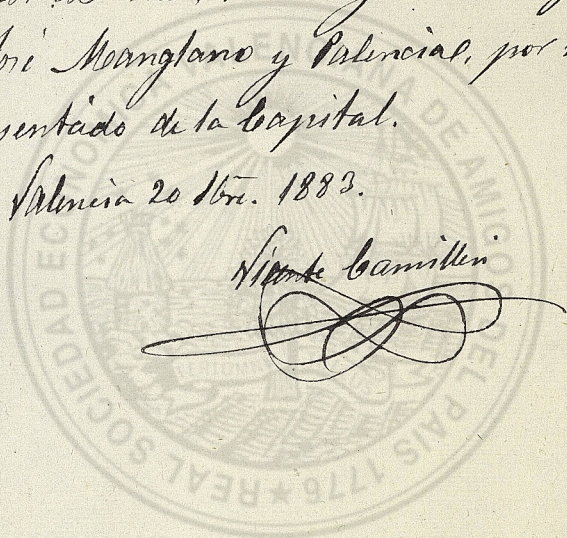 José Manglano y Palencia, por
sentado de la Capital.
Valencia 20 1883.
Vicente Camilleri
REAL SOCIEDAD ECONÓMICA VALENCIANA DE AMIGOS DEL PAIS 1776